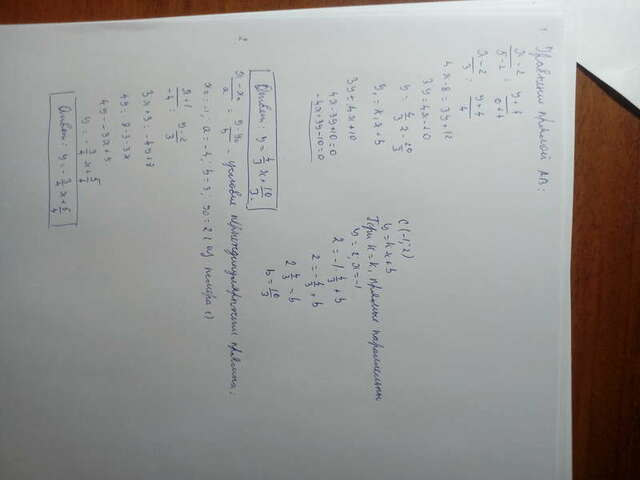 1
Уравнение прямой AB:
x-2/5-2 = y+4/0+4
x-2/3 = y+4/4
4x-8=3y+12
3y=4x-20
y = 4/3 x - 20/3
y = k₁x+b
3y=4x+10
4x-3y+10=0
-4x+3y-10=0
Ответ: y = 4/3 x + 10/3.
C(-1;2)
y=kx+b
При k=k₁ прямые параллельны
y=2, x=-1
2=-1 4/3 + b
2=-4/3+b
2 4/3 = b
b=10/3
2
x-x₀/a = y-y₀/b - условие перпендикулярности прямых:
x₀=-1, a=-4, b=3, y₀=2 (из номера 1)
x+1/-4 = y-2/3
3x+3=-4y+8
4y=8-3-3x
4y=-3x+5
y=-3/4 x+5/4
Ответ: y=-3/4 x+5/4